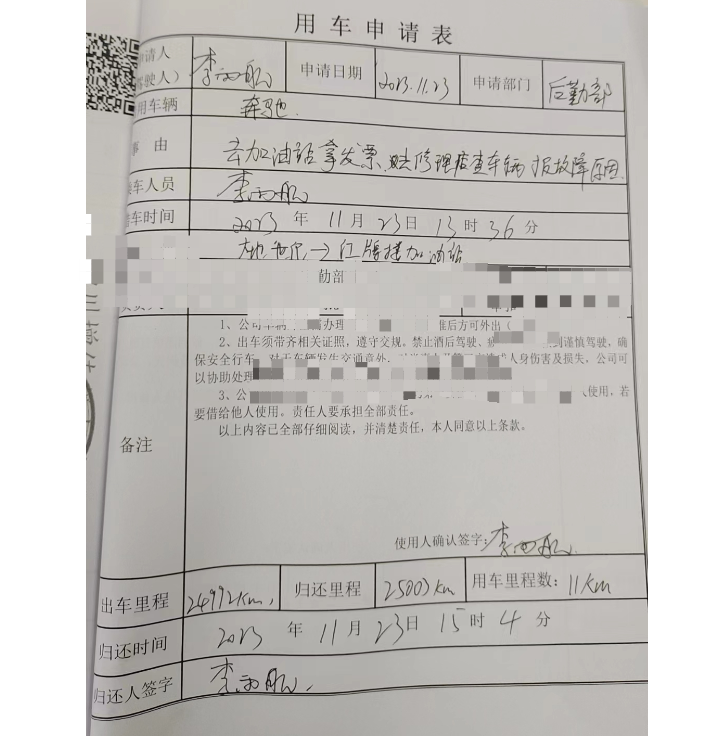 用车申请表
申请人 李雨航 申请日期 2023.11.23 申请部门 后勤部
驶人）
用车辆 奔驰.
事由 去加油站拿发票、去修理店查车辆报故障原因
乘车人员 李雨航
车时间 2023年11月23日13时36分
→红牌楼加油站
勤部
1、公司车辆 办理 准后方可外出（
2、出车须带齐相关证照，遵守交规。禁止酒后驾驶、 到谨慎驾驶，确
保安全行车。对于车辆发生交通意外， 人身伤害及损失，公司可
以协助处理
3、公 人使用，若
要借给他人使用。责任人要承担全部责任。
以上内容已全部仔细阅读，并清楚责任，本人同意以上条款。
备注
使用人确认签字：李雨航
出车里程 24992Km, 归还里程 25003Km 用车里程数：11Km
归还时间 2023年11月23日15时4分
归还人签字 李雨航.